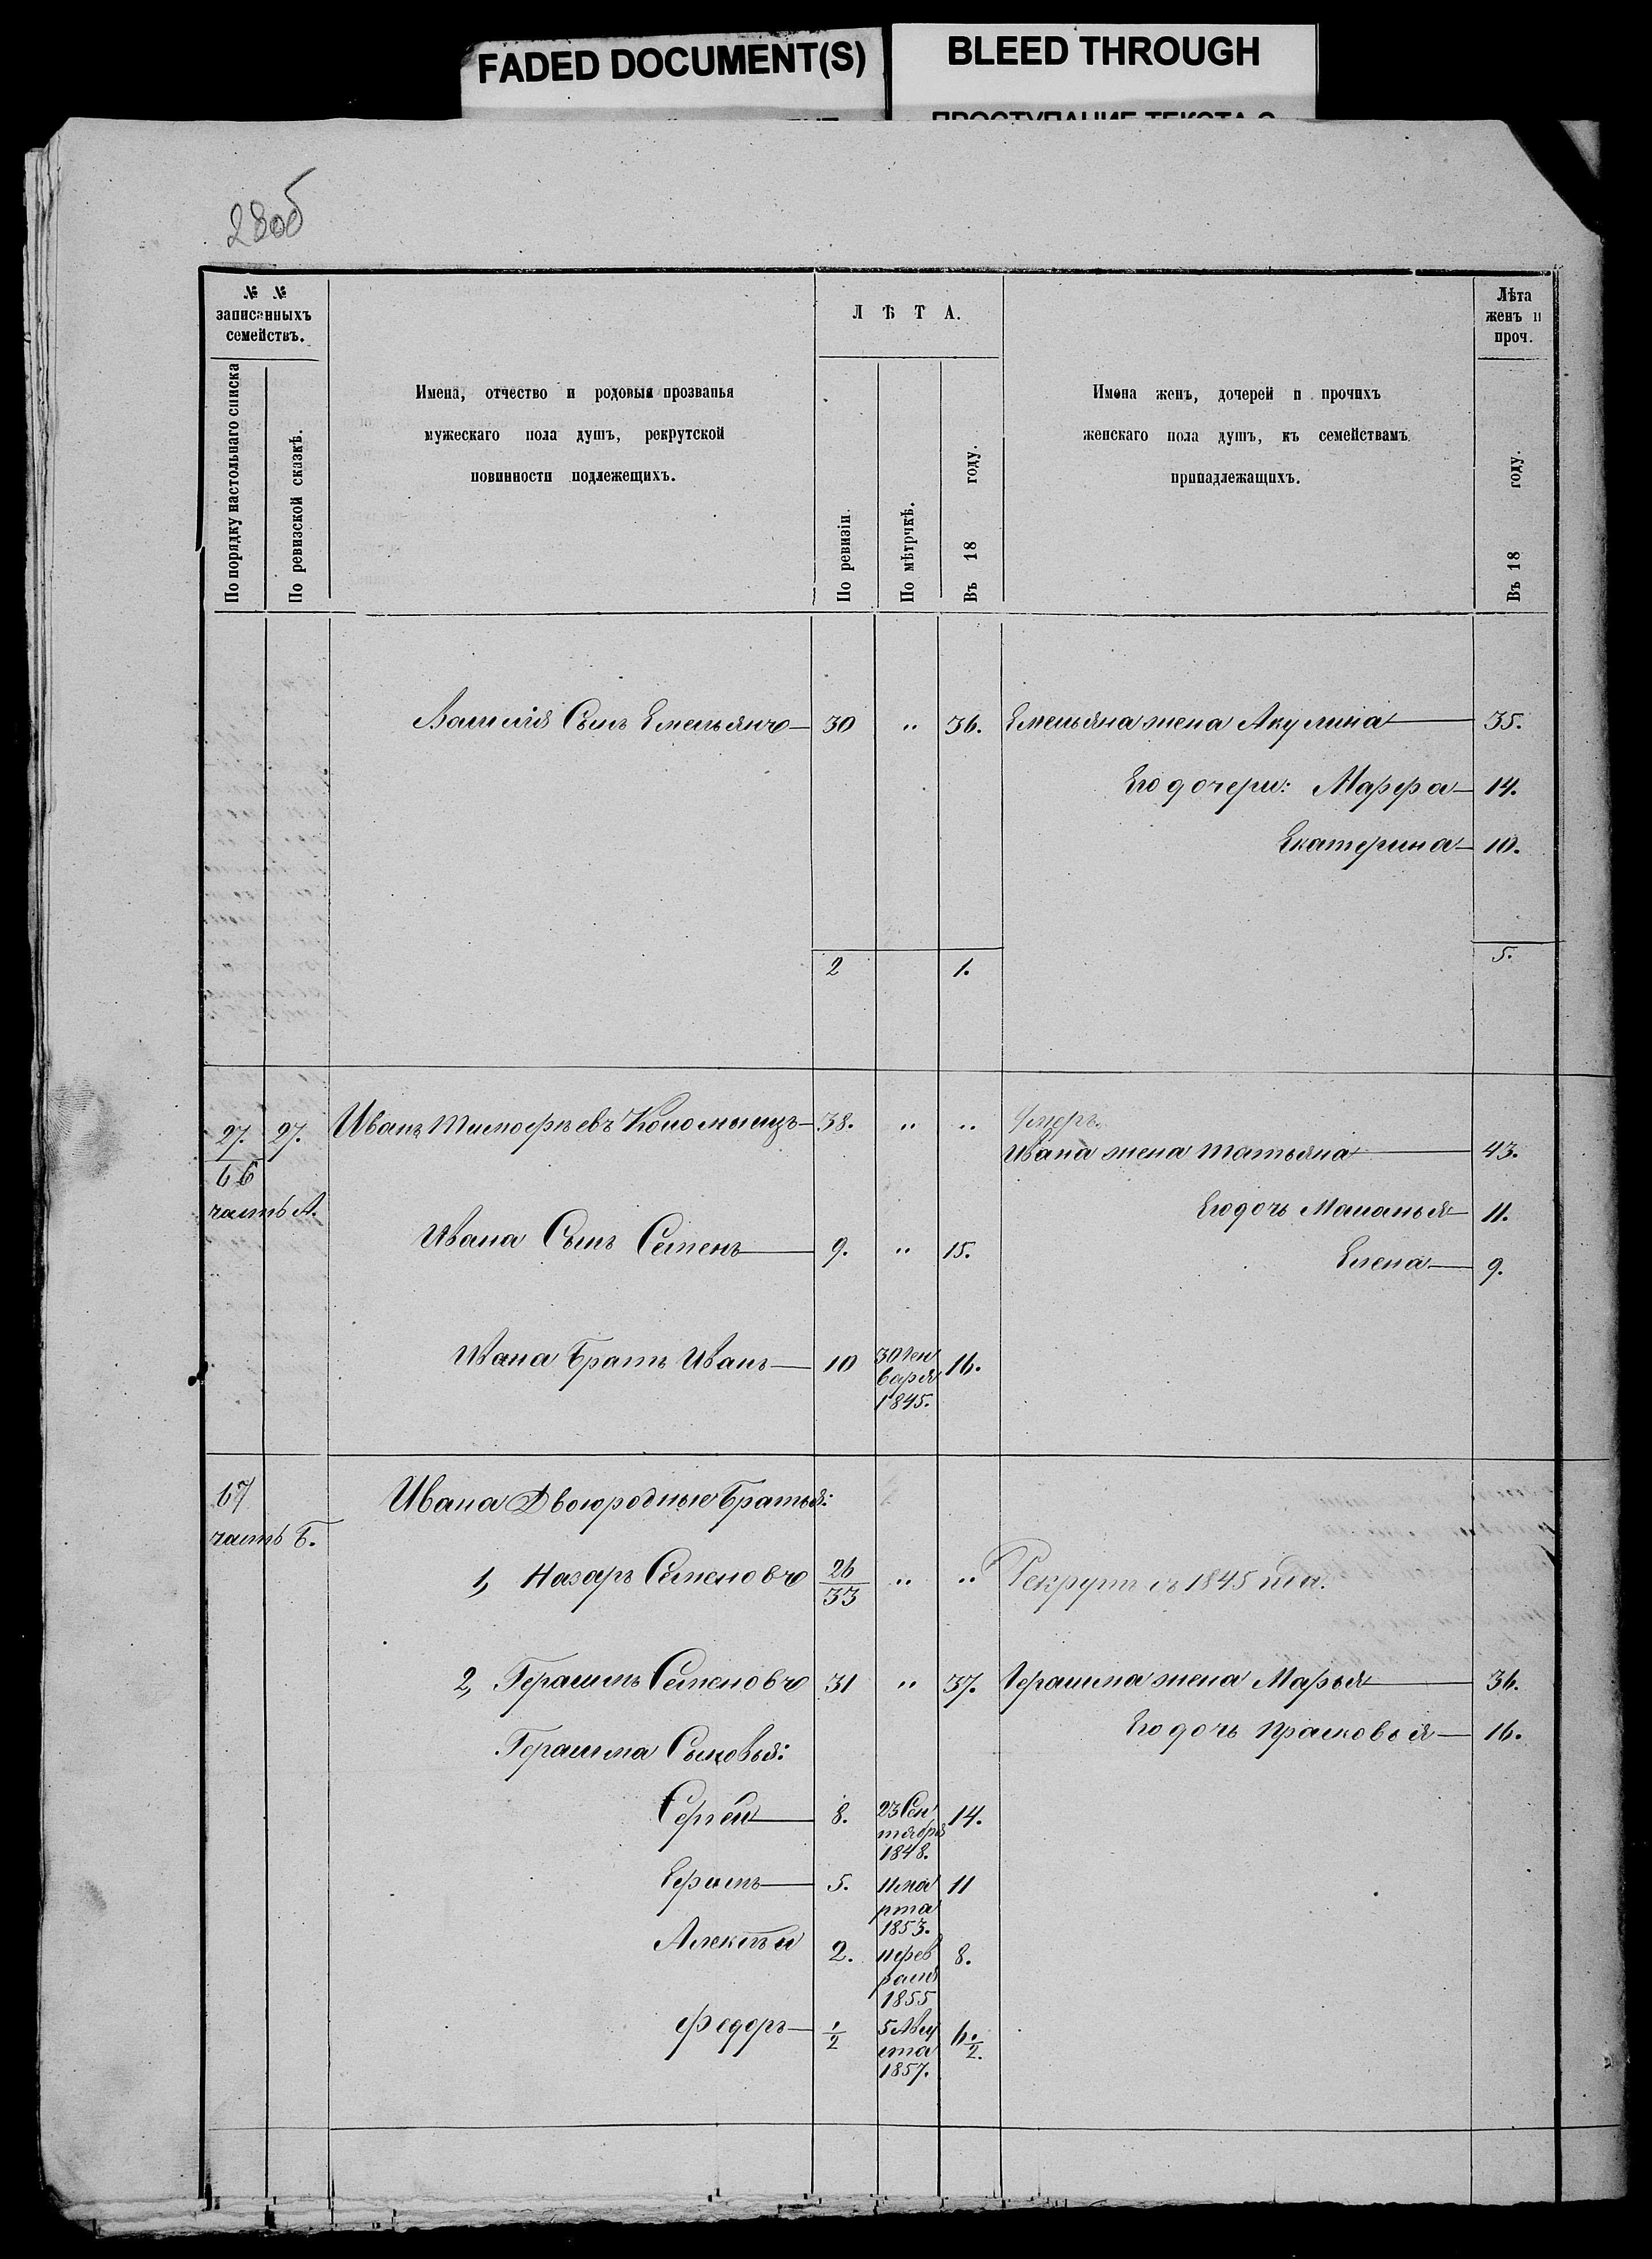 FADED DOCUMENT(S)
BLEED THROUGH
ПРОСТУПАНИЕ ТЕКСТА С
28об
№ №
записанныхъ
семействъ.
По порядку настольнаго списка
По ревизской сказкѣ.
Имена, отчество и родовыя прозванья
мужескаго пола душъ, рекрутской
повинности подлежещихъ.
Л Ѣ Т А.
По ревизіи.
По мѣтрчкѣ.
Въ 18 году.
Имена женъ, дочерей и прочихъ
женскаго пола душъ, къ семействамъ
принадлежащихъ.
Лѣта
женъ и
проч.
Въ 18 году.
Василія Сынъ Емельянъ 30 " 36. Емельяна жена Акулина 35.
Его дочери: Марфа 14.
Екатерина 10.
2 1. 5.
27. 27. Иванъ Тимофѣевъ 38. " " Умеръ.
66
часть А.
Ивана жена Татьяна 43.
Его дочь Маланья 11.
Ивана Сынъ Семенъ 9. " 15.
Елена 9.
Ивана Братъ Иванъ 10 30 Ген
варя
1845. 16.
67
часть Б.
Ивана Двоюродные Братья:
1, Назаръ Семеновъ 26/33 " " Рекрутъ съ 1845 года.
2, Герасимъ Семеновъ 31 " 37. Герасима жена Марья 36.
Его дочь Прасковья 16.
Герасима Сыновья:
Сергѣй 8. 23 Сен
тября
1848. 14.
Ефимъ 5. 11 ма
рта
1853. 11
Алексѣй 2. 11 фев
раля
1855 8.
Федоръ 1/2 5 Авгу
ста
1857. 6 1/2.